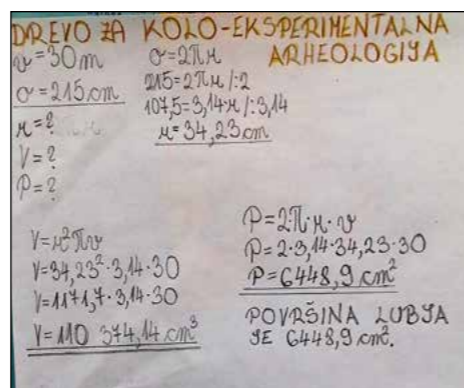 DREVO ZA KOLO-EKSPERIMENTALNA
ARHEOLOGIJA
v=30m
σ=215cm
r=?
V=?
P=?
σ=2πr
215=2πr/:2
107,5=3,14·r/:3,14
r=34,23cm
V=r²πv
V=34,23²·3,14·30
V=1171,7·3,14·30
V=110 374,14 cm³
P=2π·r·v
P=2·3,14·34,23·30
P=6448,9 cm²
POVRŠINA LUBJA
JE 6448,9 cm².